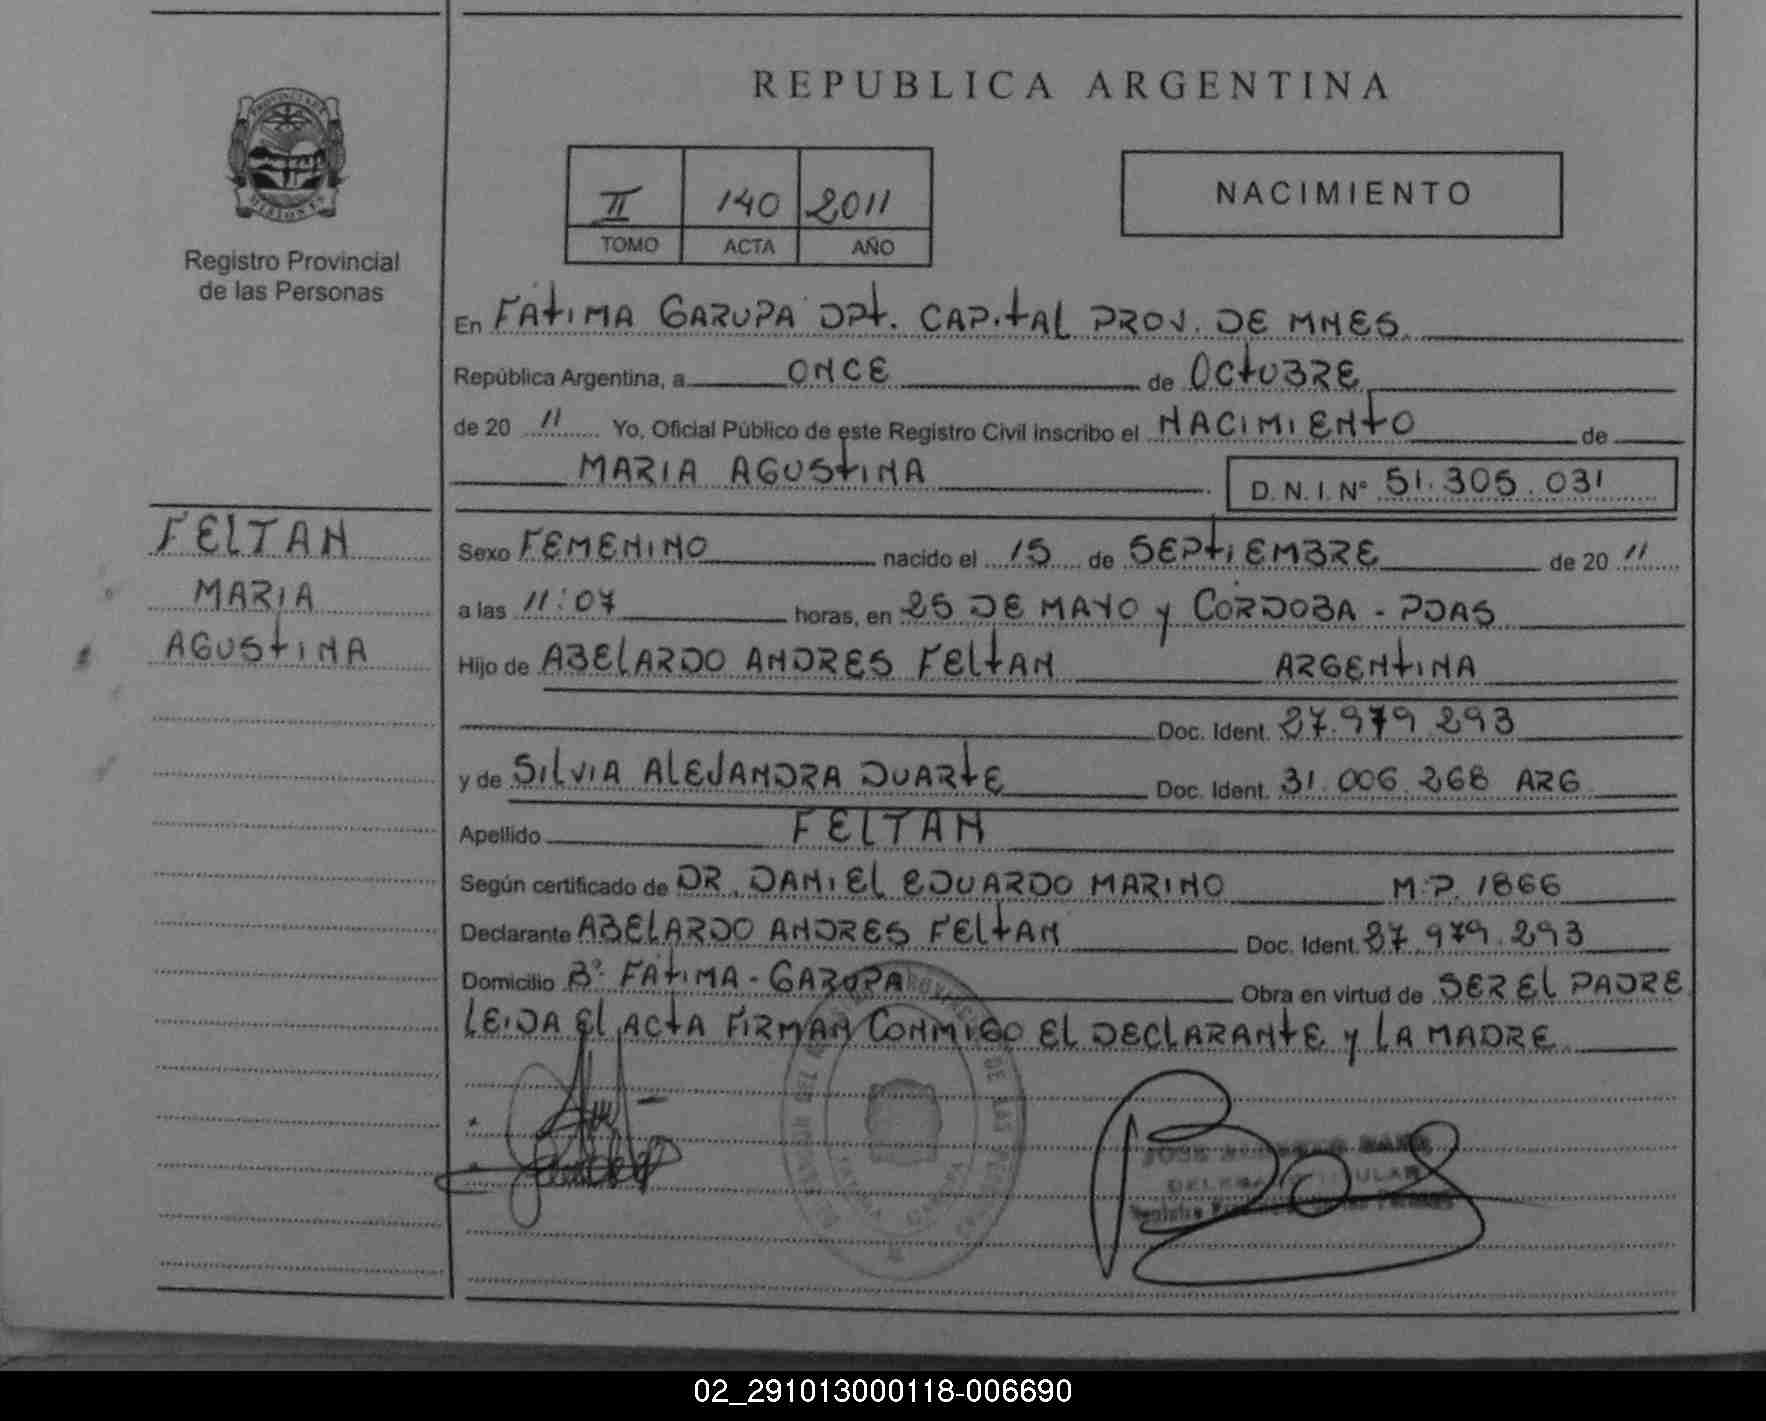 REPUBLICA ARGENTINA
PROVINCIA DE
MISIONES
Registro Provincial
de las Personas
II 140 2011
TOMO ACTA AÑO
NACIMIENTO
En FATIMA GARUPA DPT. CAPITAL PROV. DE MNES.
República Argentina, a ONCE de OCTUBRE
de 20 11 Yo, Oficial Público de este Registro Civil inscribo el NACIMIENTO de
MARIA AGUSTINA D.N.I. Nº 51.305.031
FELTAN
MARIA
AGUSTINA
Sexo FEMENINO nacido el 15 de SEPTIEMBRE de 20 11
a las 11:07 horas, en 25 DE MAYO y CORDOBA - PDAS
Hijo de ABELARDO ANDRES FELTAN ARGENTINA
Doc. Ident. 27.979.293
y de SILVIA ALEJANDRA DUARTE Doc. Ident. 31.006.268 ARG
Apellido FELTAN
Según certificado de DR. DANIEL EDUARDO MARINO M.P. 1866
Declarante ABELARDO ANDRES FELTAN Doc. Ident. 27.979.293
Domicilio Bº FATIMA - GARUPA Obra en virtud de SER EL PADRE
LEIDA EL ACTA FIRMAN CONMIGO EL DECLARANTE y LA MADRE
JOSE
DELEGADO TITULAR
Registro Provincial de las Personas
02_291013000118-006690